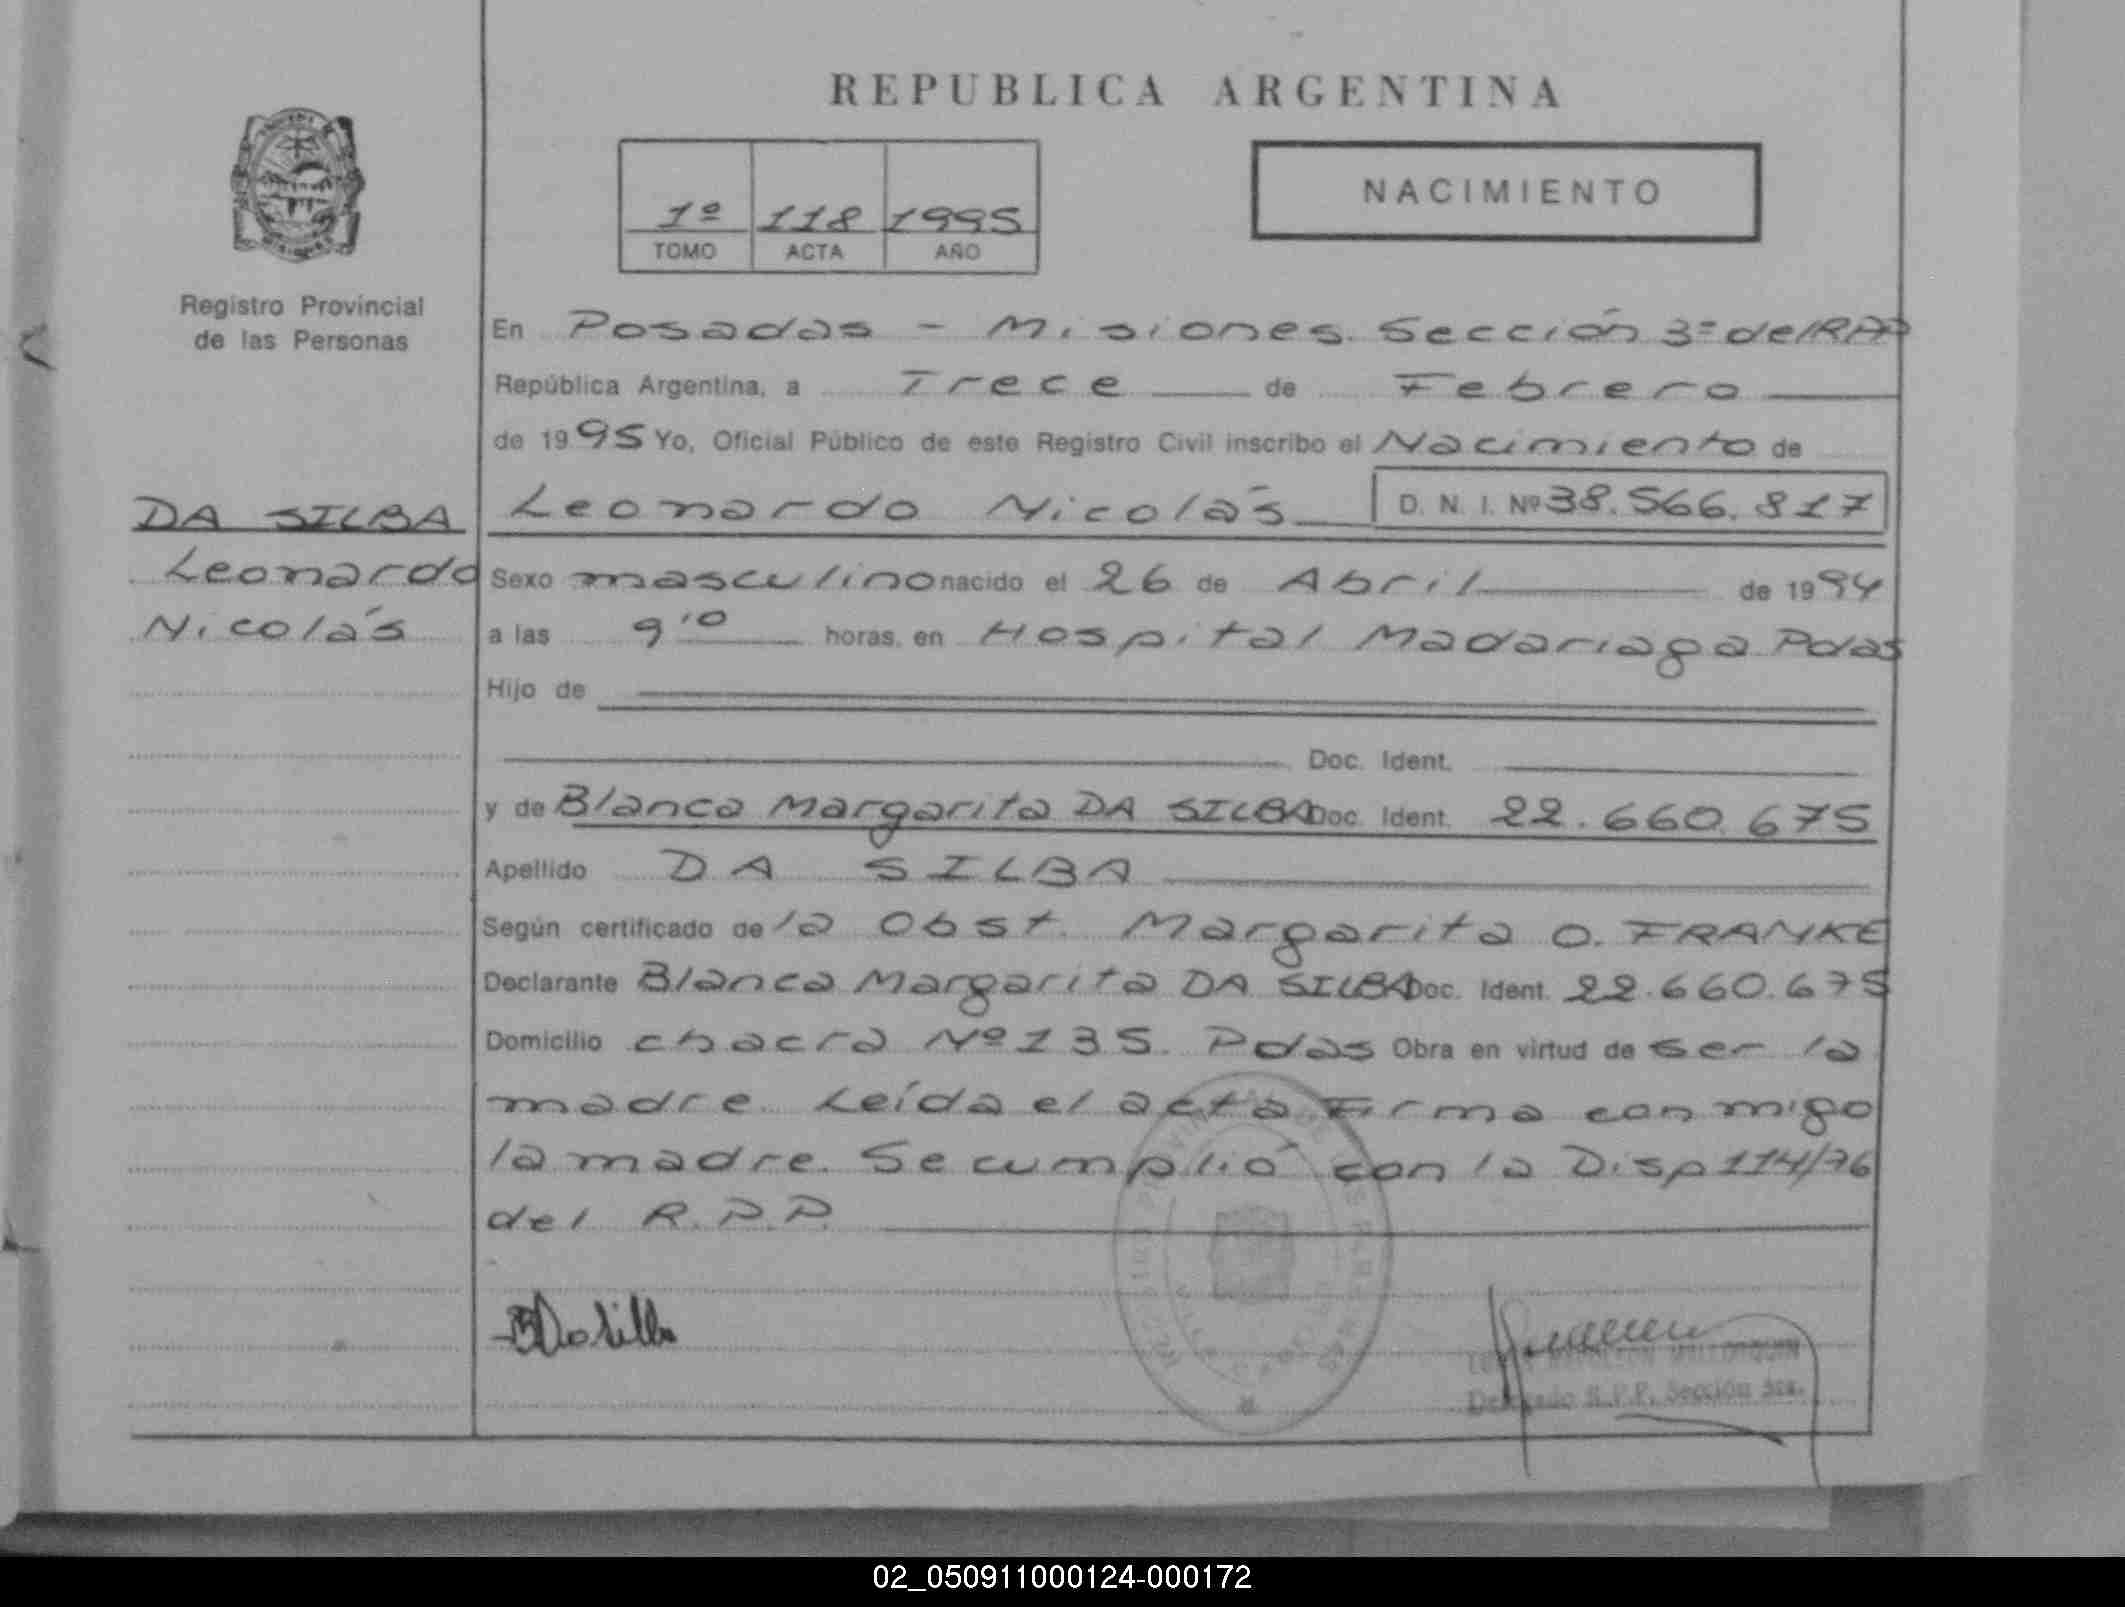 REPUBLICA ARGENTINA
1º 118 1995
TOMO ACTA AÑO
NACIMIENTO
Registro Provincial
de las Personas
DA SILBA
Leonardo
Nicolás
En Posadas - Misiones. Sección 3ª del RPP
República Argentina, a Trece de Febrero
de 1995 Yo, Oficial Público de este Registro Civil inscribo el Nacimiento de
Leonardo Nicolás D. N. I. Nº 38.566.817
Sexo masculino nacido el 26 de Abril de 1994
a las 9'10 horas, en Hospital Madariaga Pdas
Hijo de
Doc. Ident.
y de Blanca Margarita DA SILBA Doc. Ident. 22.660.675
Apellido DA SILBA
Según certificado de la Obst. Margarita O. FRANKE
Declarante Blanca Margarita DA SILBA Doc. Ident. 22.660.675
Domicilio chacra Nº 135. Pdas Obra en virtud de ser la
madre. Leída el acta Firma conmigo
la madre. Se cumplió con la Disp 114/76
del R.P.P.
Delegado R.P.P. Sección 3ra.
02_050911000124-000172